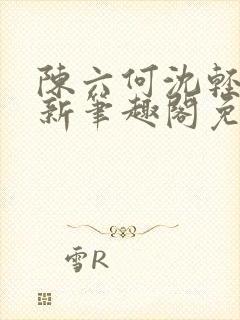 陳六何沈輕
新筆趣閣免
雪R